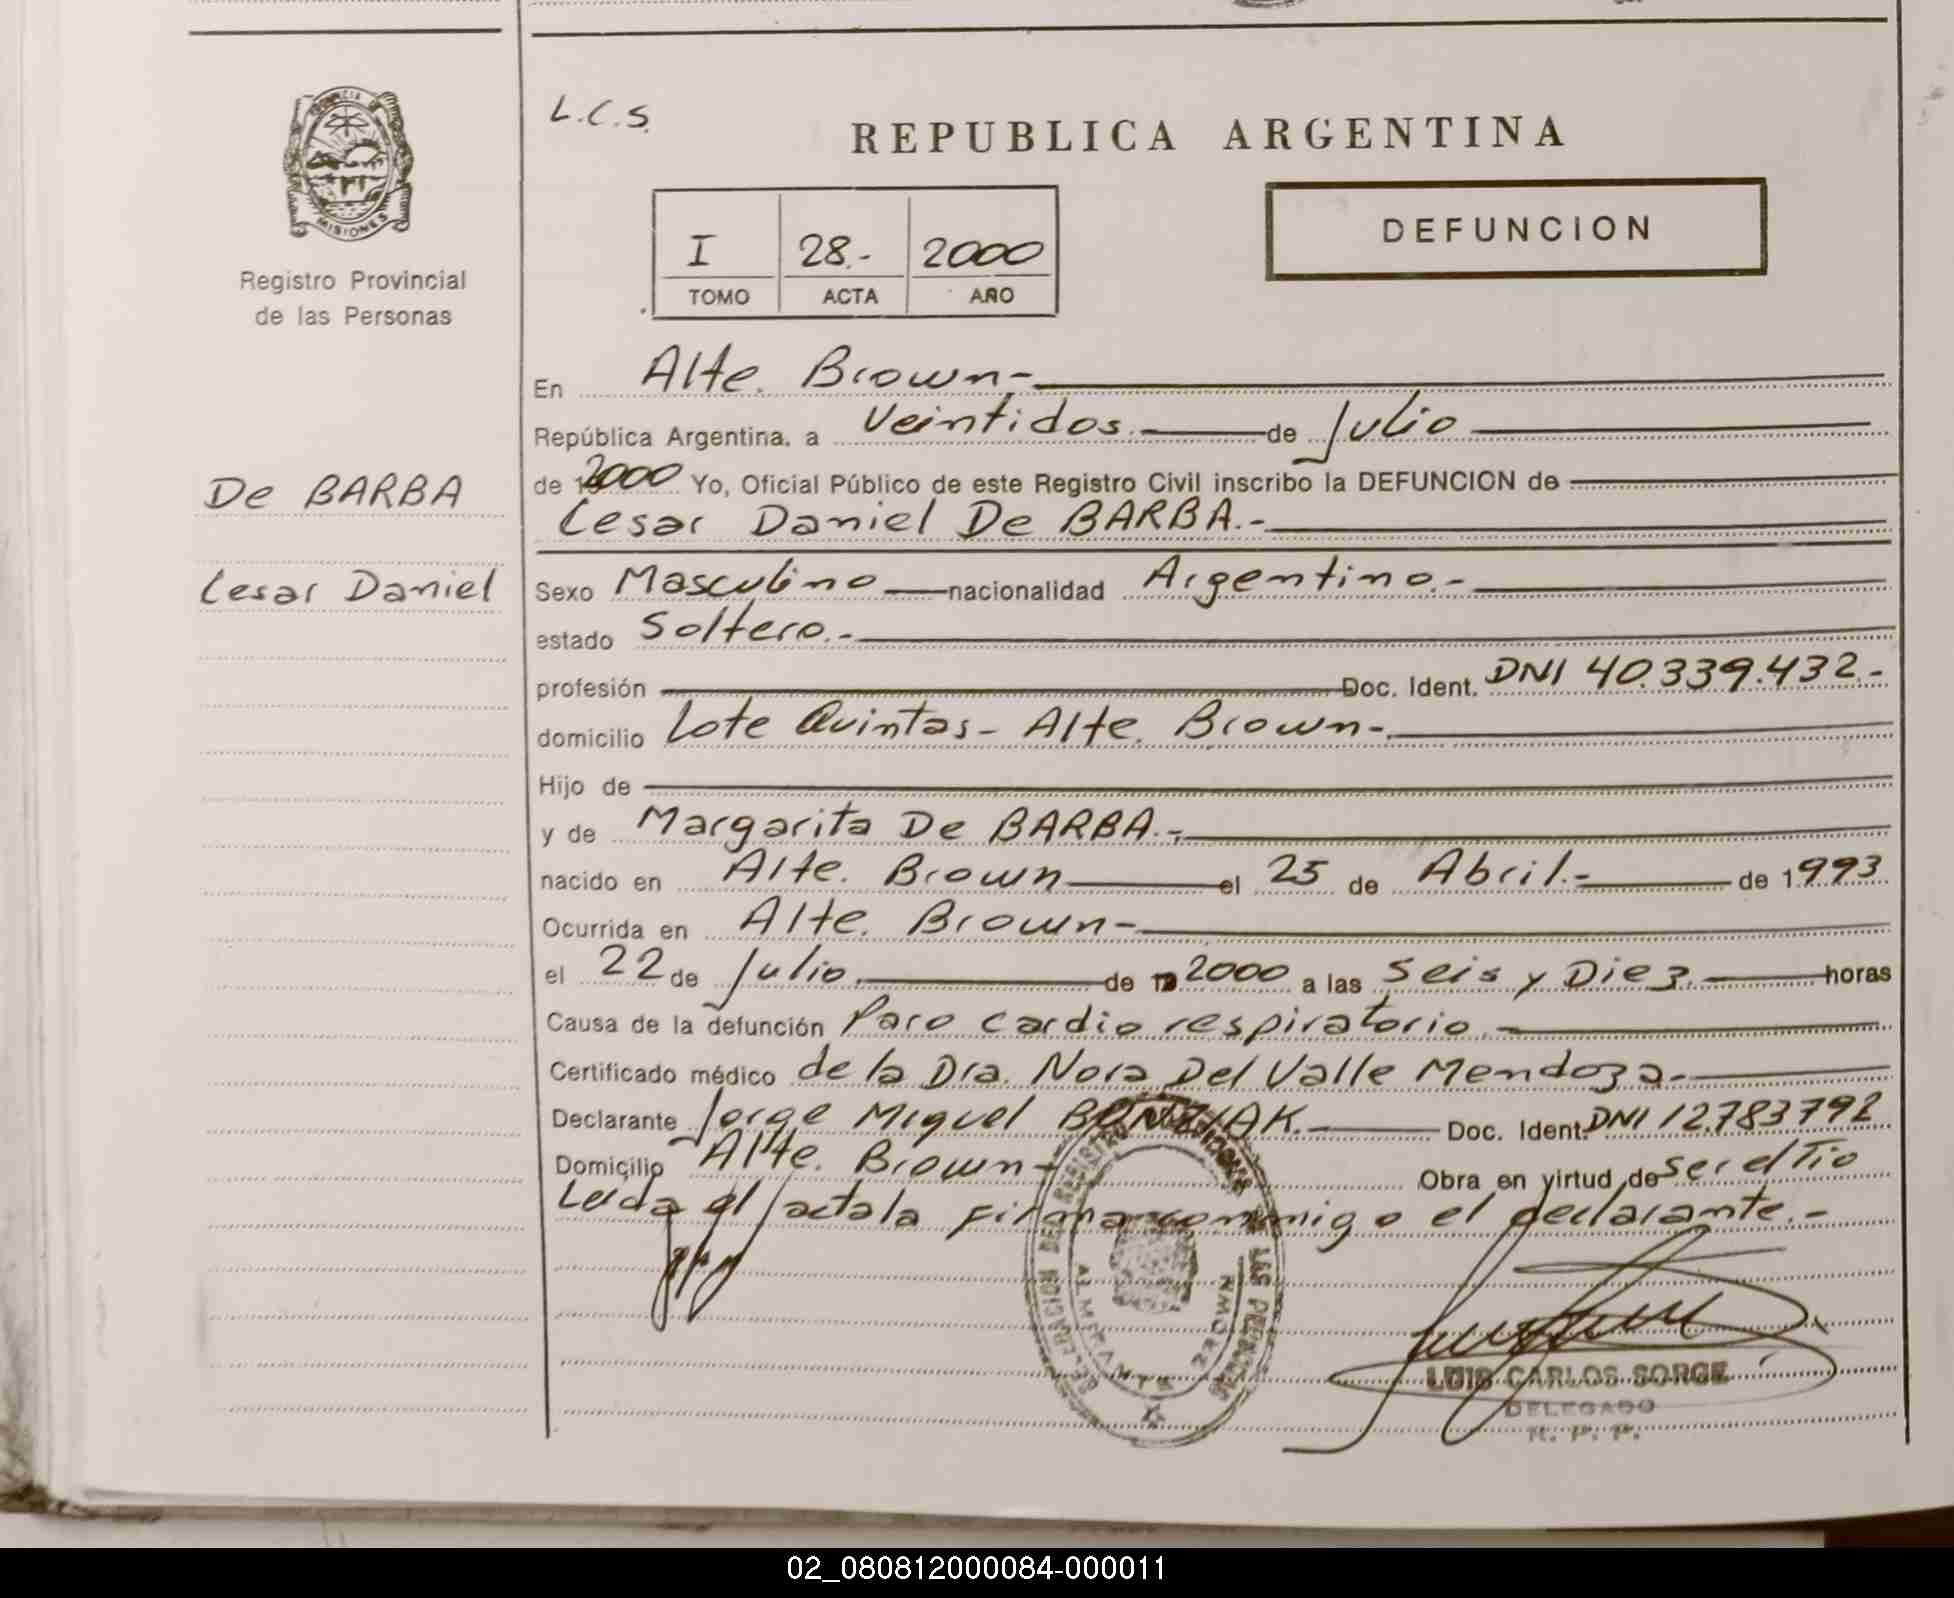 L.C.S.
REPUBLICA ARGENTINA
PROVINCIA DE
MISIONES
Registro Provincial
de las Personas
I 28.- 2000
TOMO ACTA AÑO
DEFUNCION
En Alte. Brown-
República Argentina, a Veintidos. de Julio
de 2000 Yo, Oficial Público de este Registro Civil inscribo la DEFUNCION de
De BARBA
Cesar Daniel De BARBA.-
Cesar Daniel
Sexo Masculino nacionalidad Argentino.-
estado Soltero.-
profesión Doc. Ident. DNI 40.339.432.-
domicilio Lote Quintas- Alte. Brown-.
Hijo de
y de Margarita De BARBA.-
nacido en Alte. Brown el 25 de Abril.- de 1993
Ocurrida en Alte. Brown-
el 22 de Julio. de 2000 a las Seis y Diez. horas
Causa de la defunción Paro cardio respiratorio.-
Certificado médico de la Dra. Nora Del Valle Mendoza.-
Declarante Jorge Miguel Doc. Ident. DNI 12.783792
Domicilio Alte. Brown- Obra en virtud de ser el Tio
Leida el acta la firma conmigo el declarante.-
LUIS CARLOS SORGE
DELEGADO
R. P. P.
02_080812000084-000011